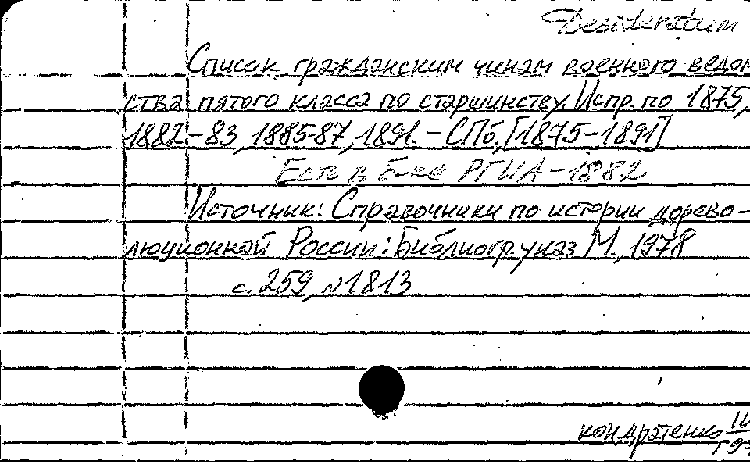 Desideratum
Список гражданским чинам военного ведом
ства пятого класса по старшинству. Испр. по 1875,
1882-83, 1885-87, 1891. - СПб, [1875-1891]
Есть в Б-ке РГИА - 1882
Источник: Справочники по истории дорево-
люционной России: Библиогр. указ М., 1978
с. 259, №1813
кондратенко